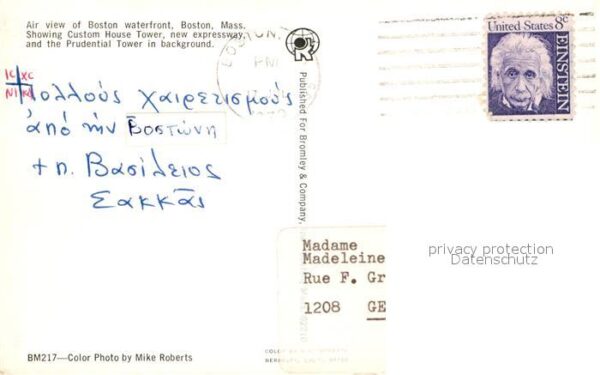 Air view of Boston waterfront, Boston, Mass.
Showing Custom House Tower, new expressway,
and the Prudential Tower in background.
IC XC
NI KA
Πολλοὺς χαιρετισμοὺς
ἀπό τὴν Βοστώνη
+ π. Βασίλειος
Σακκᾶς
Published For Bromley & Company,
United States 8c
EINSTEIN
Madame
Madeleine
Rue F. Gr
1208 GE
privacy protection
Datenschutz
BM217—Color Photo by Mike Roberts